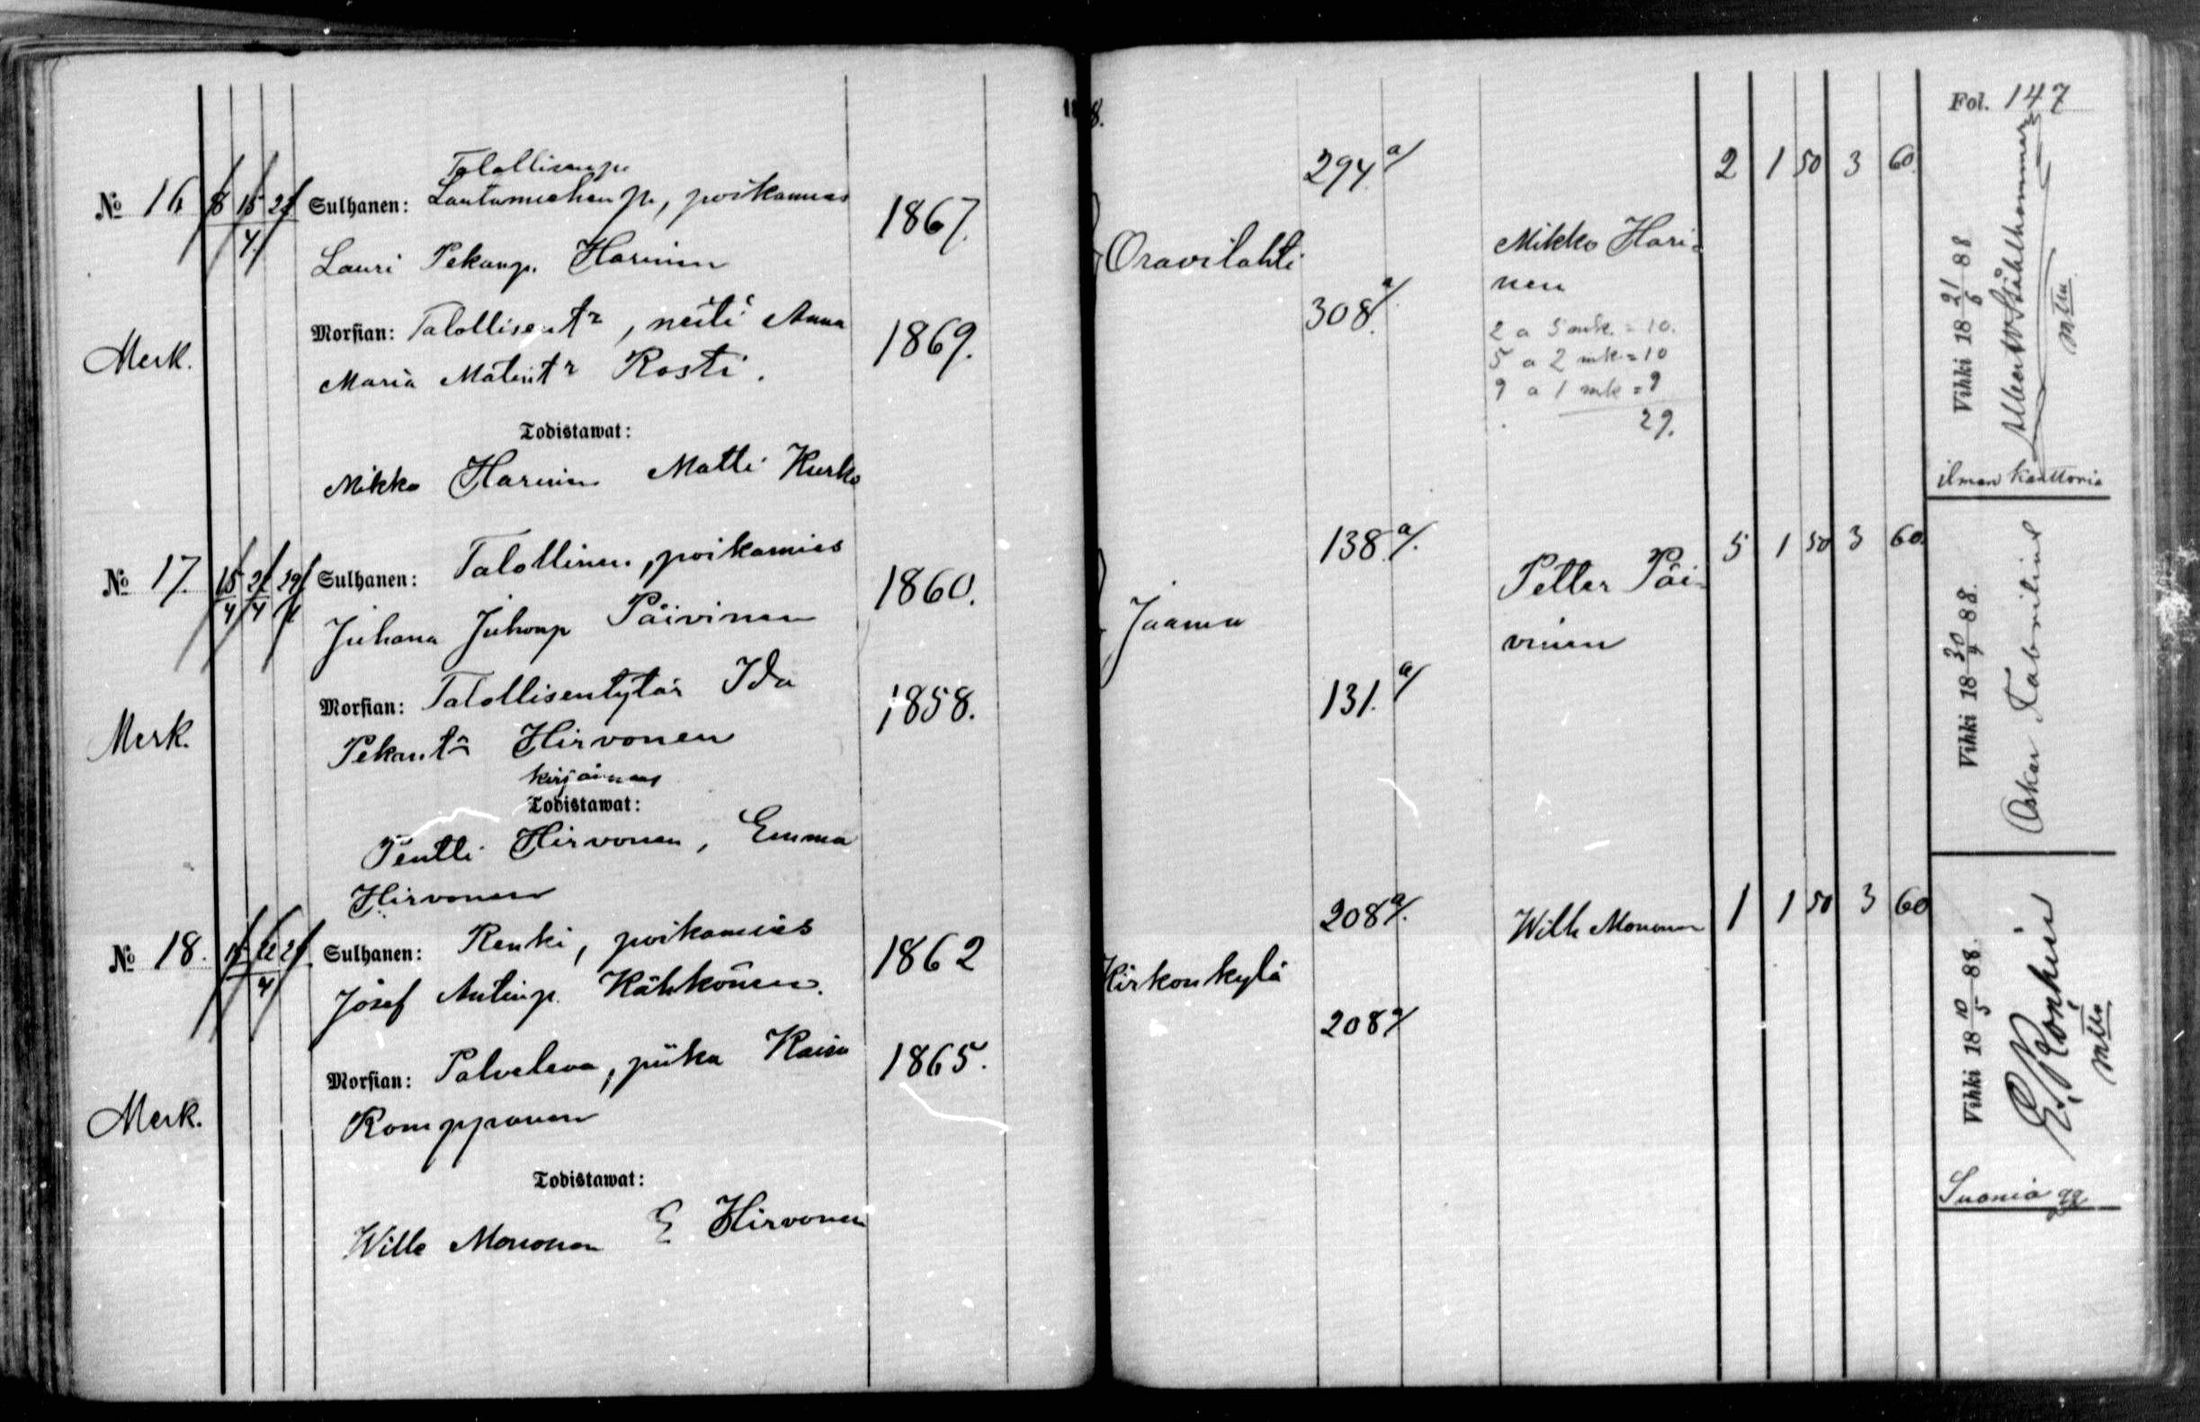 188.
Fol. 147
Talollisenp.
№ 16 8 15 22 Sulhanen: Lautamiehen p., poikamies 1867.
4.
Lauri Pekanp. Harinen
Morsian: Talollisent:r, neiti Anna 1869.
Merk.
Maria Matint:r Rosti.
Todistawat:
Mikko Harinen Matti Kurko
294 a/. 2 1 50 3 60
Oravilahti Mikko Hari-
nen
308 a/.
2 a 5 mk. = 10.
5 a 2 mk. = 10
9 a 1 mk = 9
29.
Vihki 18 21/6 88
Albert W Stålhammar
mllu
ilman kanttoria
№ 17. 15/4 22/4 29/4 Sulhanen: Talollinen, poikamies 1860.
Juhana Juhonp Päivinen
Morsian: Talollisentytär Ida 1858.
Merk.
Pekant:r Hirvonen
kirjoinaas
Todistawat:
Pentti Hirvonen, Emma
Hirvonen
138 a/. 5 1 50 3 60.
Jaama Petter Päi-
vinen
131. a/
Vihki 18 30/4 88.
Oskar Fabritius
№ 18. 15 22 29 Sulhanen: Renki, poikamies 1862
4
Josef Antinp. Kähkönen.
Morsian: Palveleva, piika Kaisa 1865.
Merk.
Romppanen
Todistawat:
Wille Mononen E Hirvonen
208 a/. Wille Mononen 1 1 50 3 60
Kirkonkylä
208 a/
Vihki 18 10/5 88.
E. Ronkin
mllu
Suonio